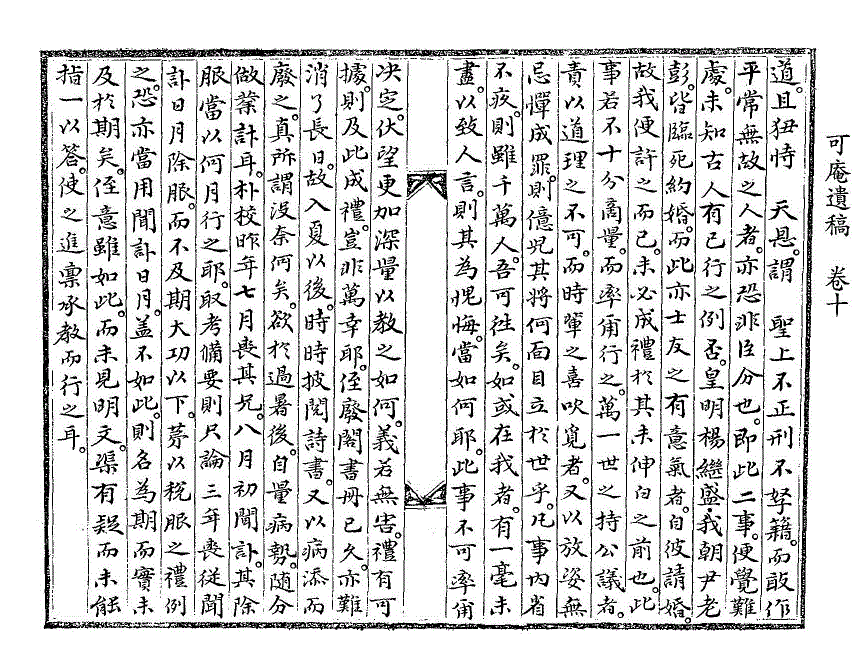 可庵遺稿 卷十
道。且狃恃 天恩。謂 聖上不正刑不孥籍。而敢作
平常無故之人者。亦恐非臣分也。卽此二事。便覺難
處。未知古人有已行之例否。皇明楊繼盛。我朝尹老
彭。皆臨死約婚。而此亦士友之有意氣者。自彼請婚。
故我便許之而已。未必成禮於其未伸白之前也。此
事若不十分商量。而率爾行之。萬一世之持公議者。
責以道理之不可。而時輩之喜吹覓者。又以放恣無
忌憚成罪。則億兇其將何面目立於世乎。凡事內省
不疚。則雖千萬人。吾可往矣。如或在我者。有一毫未
盡。以致人言。則其爲愧悔。當如何耶。此事不可率爾
决定。伏望更加深量以敎之如何。義若無害。禮有可
據。則及此成禮。豈非萬幸耶。侄廢閣書冊已久。亦難
消了長日。故入夏以後。時時披閱詩書。又以病添而
廢之。眞所謂沒奈何矣。欲於過暑後。自量病勢。隨分
做業計耳。朴校昨年七月喪其兄。八月初聞訃。其除
服當以何月行之耶。取考備要則只論三年喪從聞
訃日月除服。而不及期大功以下。蓋以稅服之禮例
之。恐亦當用聞訃日月。盖不如此。則名爲期而實未
及於期矣。侄意雖如此。而未見明文。渠有疑而未能
指一以答。使之進稟承敎而行之耳。